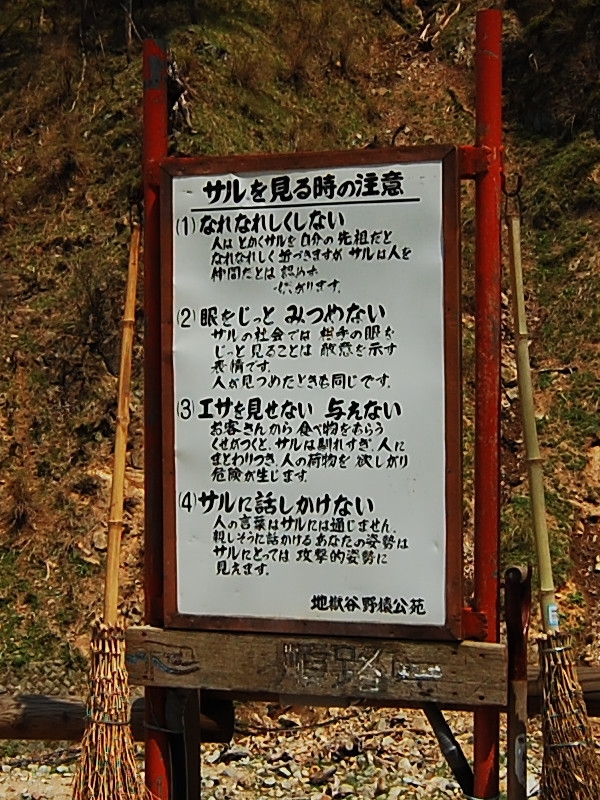 サルを見る時の注意
(1) なれなれしくしない
人は とかくサルを自分の先祖だと
なれなれしく 近づきますが サルは人を
仲間だとは 認めず
がります。
(2) 眼をじっと みつめない
サルの社会では 相手の眼を
じっと見ることは 敵意を示す
表情です。
人が見つめたときも同じです。
(3) エサを見せない 与えない
お客さんから 食べ物をもらう
くせがつくと、サルは馴れすぎ、人に
まとわりつき、人の荷物を 欲しがり
危険が生じます。
(4) サルに話しかけない
人の言葉はサルには通じません。
親しそうに話かけるあなたの姿勢は
サルにとっては 攻撃的姿勢に
見えます。
地獄谷野猿公苑